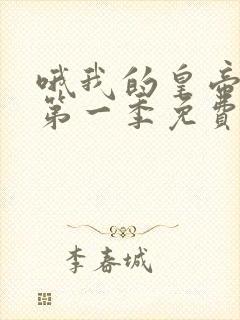 哦我的皇帝
第一季免费
李春城